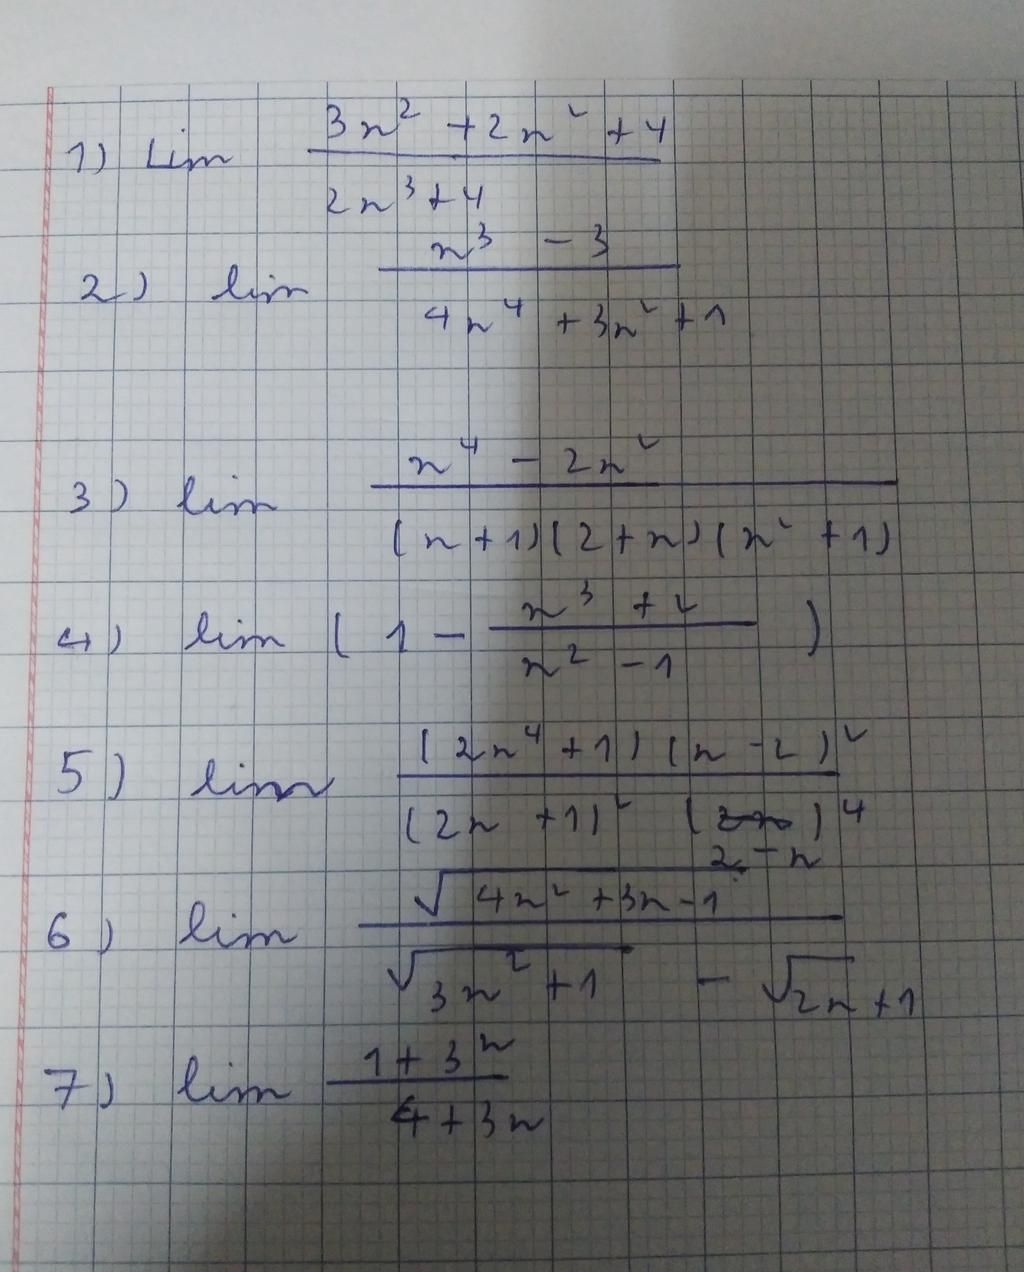 1) Lim (3n² + 2n² + 4) / (2n³ + 4)
2) lim (n³ - 3) / (4n⁴ + 3n² + 1)
3) lim (n⁴ - 2n²) / ((n+1)(2+n)(n² + 1))
4) lim (1 - (n³ + 2) / (n² - 1))
5) lim ((2n⁴ + 1)(n - 2)²) / ((2n + 1)² (2 - n)⁴)
6) lim √(4n² + 3n - 1) / (√(3n² + 1) - √(2n) + 1)
7) lim (1 + 3ⁿ) / (4 + 3n)